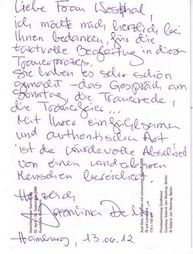 Liebe Frau Westphal,
ich möchte mich herzlich bei
Ihnen bedanken, für die
taktvolle Begleitung in diesem
Trauerprozess.
Sie haben es sehr schön
gemacht - das Gespräch am
Sonntag, die Trauerede,
die Trauerfeier...
Mit Ihrer einfühlsamen
und authentischen Art
ist die würdevolle Abschied
von einem wunderbaren
Menschen bereichert
Herzlich
Hamburg, 13.06.12